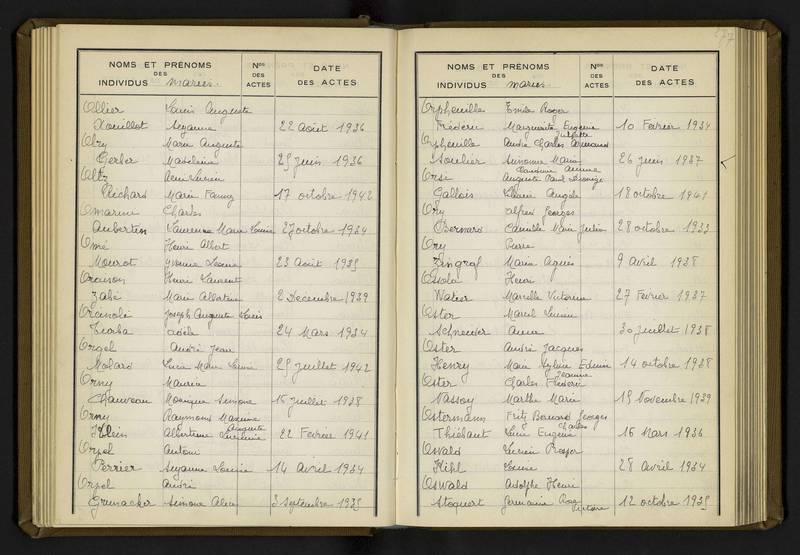 NOMS ET PRÉNOMS
DES
INDIVIDUS mariés.
Nos
DES
ACTES
DATE
DES ACTES
Ollier Louis Auguste
Xouillot Suzanne 22 Août 1936
Olry Marie Auguste
Gerber Madeleine 25 juin 1936
Oltz
Richard Marie Fanny 17 octobre 1942
Charles
Aubertin Laurence Marie Louise 27 octobre 1934
Omé Henri Albert
Mourot Yvonne 23 Août 1935
Henri Laurent
Zabé Marie Albertine 2 Décembre 1939
Joseph Auguste Louis
Adèle 24 Mars 1934
Orgel André Jean
Molard Lucie Marie Louise 25 juillet 1942
Orny Maurice
Chauveau Monique Simone 16 juillet 1938
Orny Raymond Maxime
Klein Albertine Augusta 22 Février 1941
Orpel Antoine
Perrier Suzanne Louise 14 Avril 1934
Orpel André
Grumacker Simone Alice 3 Septembre 1935
277
NOMS ET PRÉNOMS
DES
INDIVIDUS mariés.
Nos
DES
ACTES
DATE
DES ACTES
Orpheuille Emile Roger
Fréderic Marguerite Eugénie Juliette 10 Février 1934
Orpheuille André Charles Armand
Soulier Simonne Marie 26 juin 1937
Orsi Auguste Paul
Gallois Angèle 18 octobre 1941
Ory Alfred Georges
Bernard Camille Marie Julie 28 octobre 1933
Ory Pierre
Zingraf Marie Agnès 9 Avril 1938
Ossola Henri
Walter Marcelle Victorine 27 Février 1937
Oster Marcel Lucien
Schneider Anna 30 juillet 1938
Oster André Jacques
Henry Marie 14 octobre 1938
Oster Charles Frédéric
Vassoy Marthe Marie 15 Novembre 1939
Ostermann Fritz Bernard Georges Charles
Thiébaut Lucie Eugénie 16 Mars 1936
Oswald Lucien Prosper
Kihl Louise 28 Avril 1934
Oswald Adolphe Henri
Stoquert Germaine 12 octobre 1935